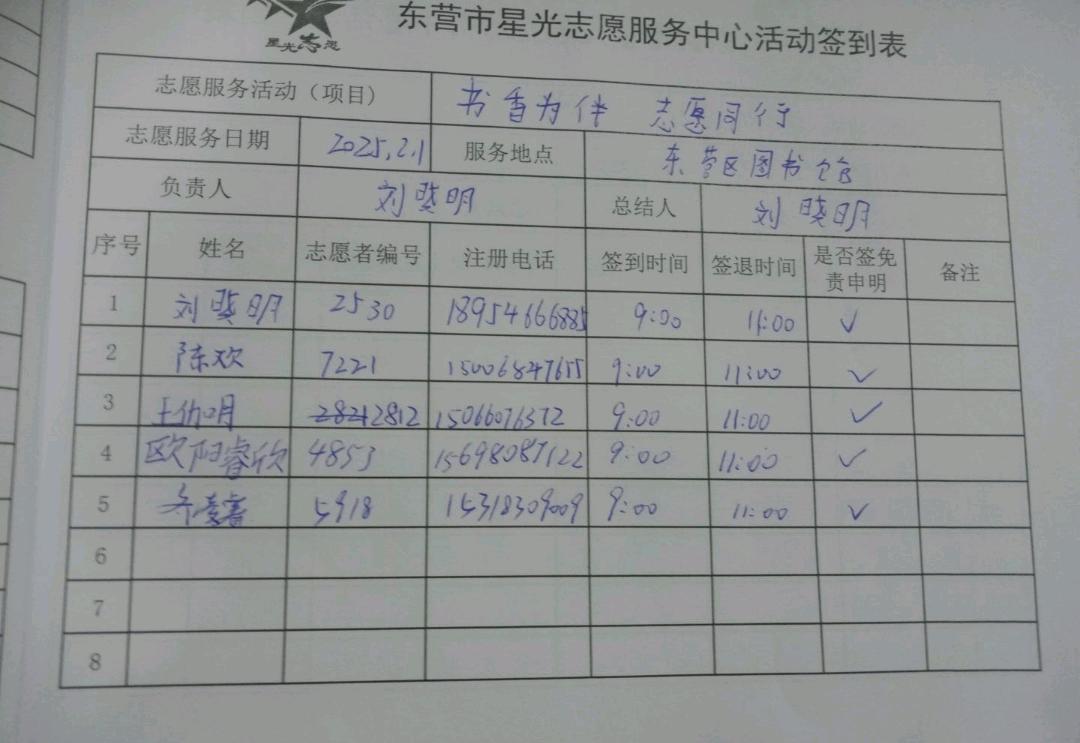 星光志愿
东营市星光志愿服务中心活动签到表
志愿服务活动（项目） 书香为伴 志愿同行
志愿服务日期 2025.2.1 服务地点 东营区图书馆
负责人 刘晓明 总结人 刘晓明
序号 姓名 志愿者编号 注册电话 签到时间 签退时间 是否签免责申明 备注
1 刘晓明 2530 18954666885 9:00 11:00 ✓
2 陈欢 7221 15006847655 9:00 11:00 ✓
3 2812 15066076372 9:00 11:00 ✓
4 欧阳睿欣 4853 15698087122 9:00 11:00 ✓
5 5918 15318309009 9:00 11:00 ✓
6
7
8